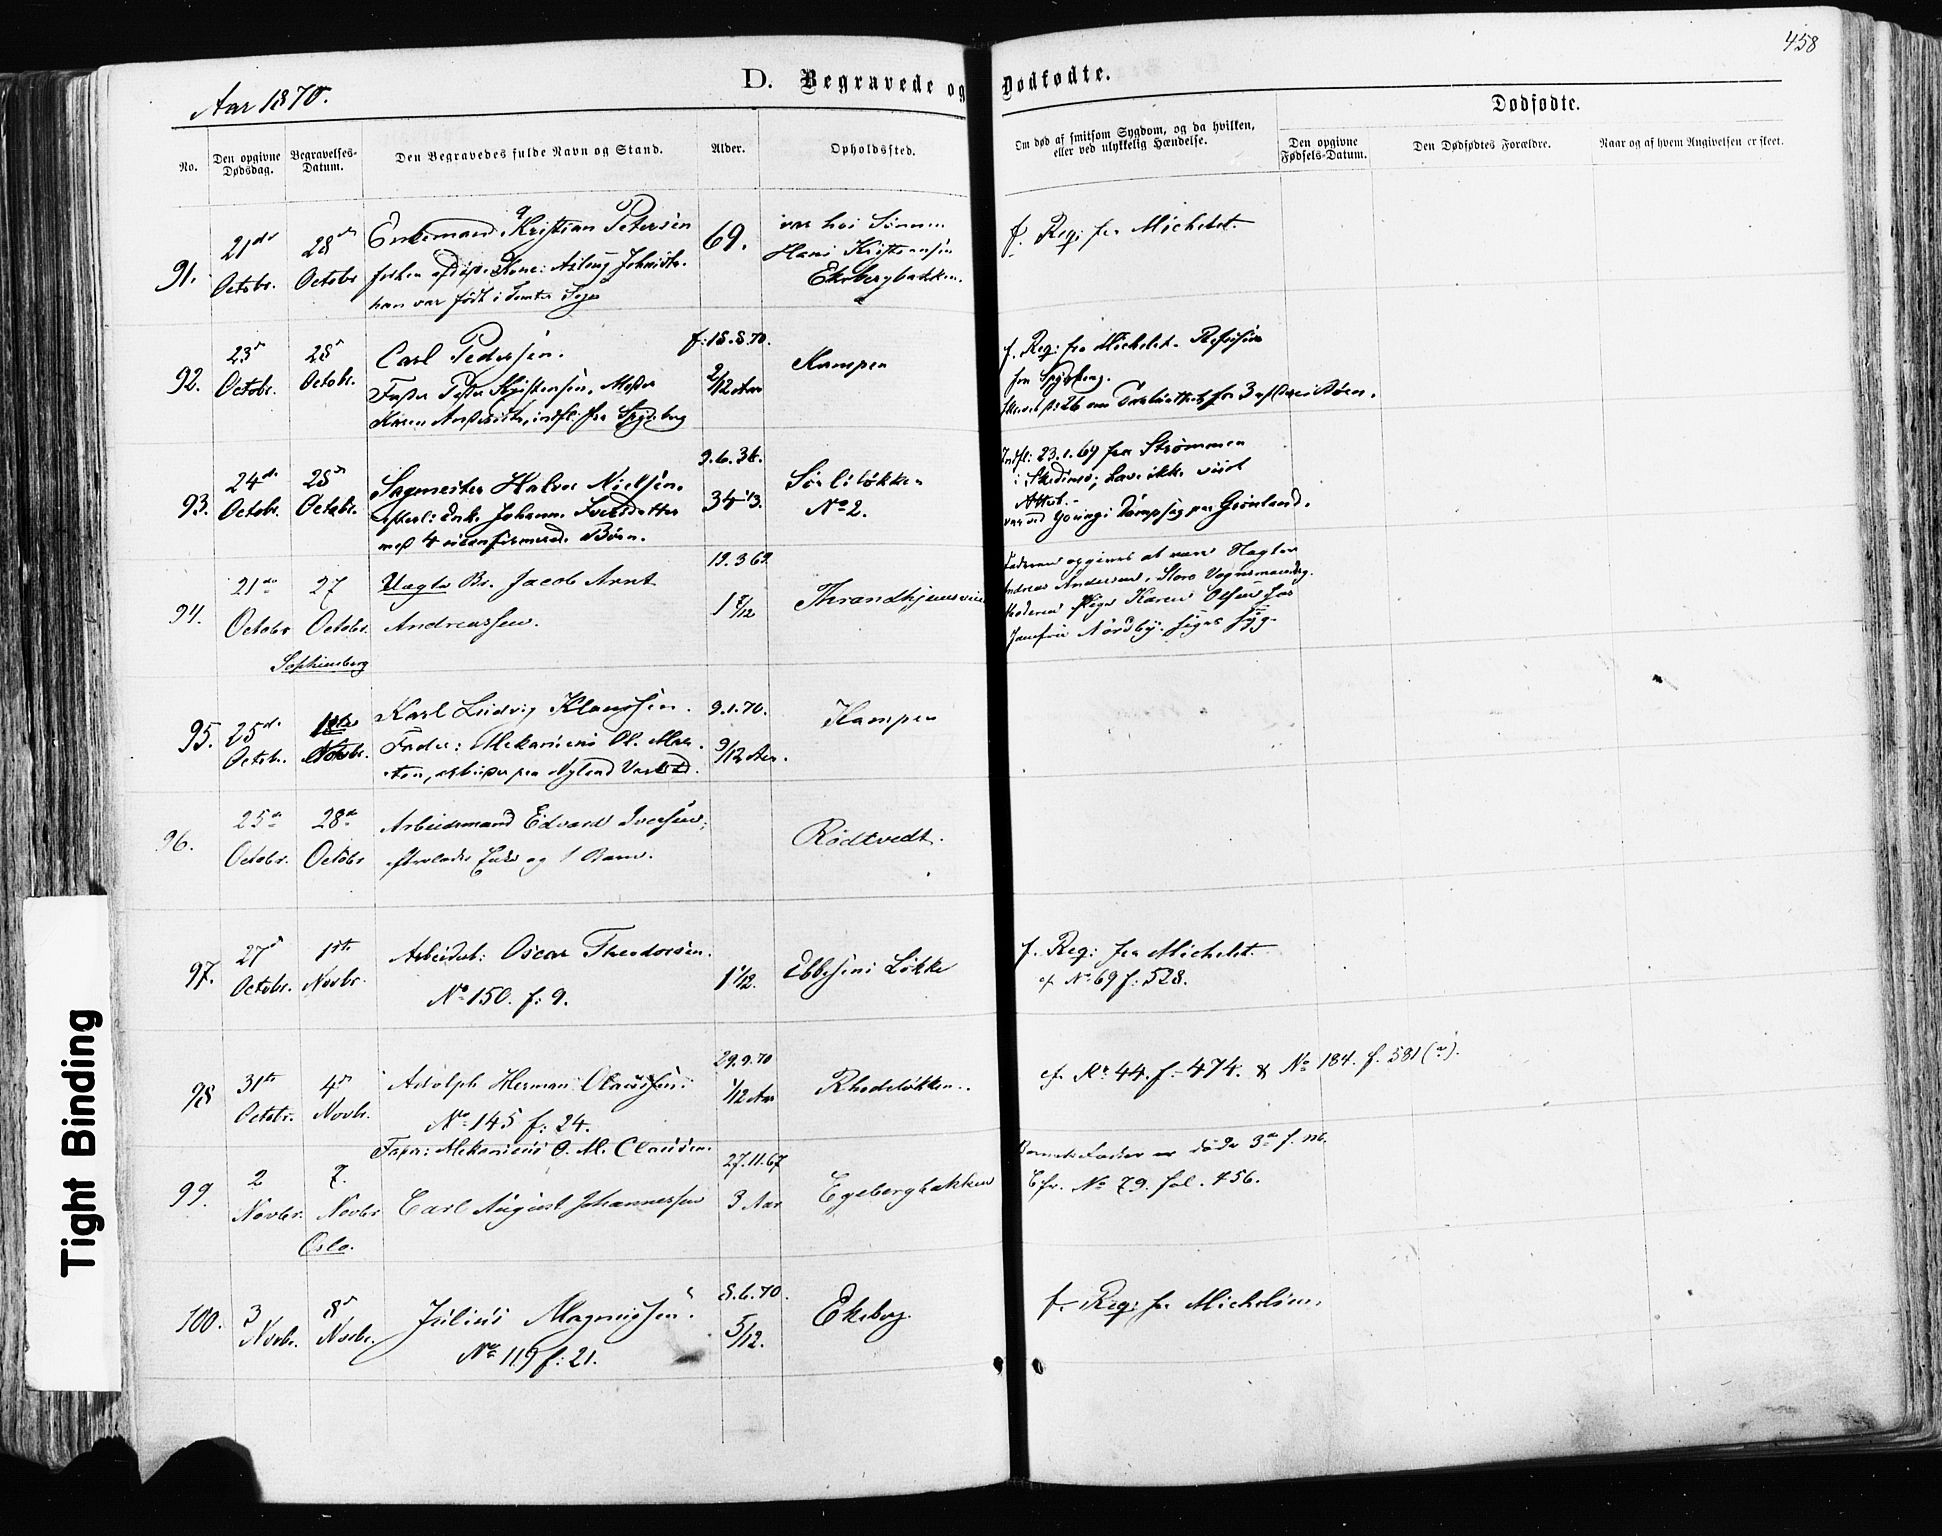 458
Aar 1870.
D. Begravede og Dødfødte.
Dødfødte.
No.
Den opgivne Dødsdag.
Begravelses-Datum.
Den Begravedes fulde Navn og Stand.
Alder.
Opholdssted.
Om død af smitsom Sygdom, og da hvilken, eller ved ulykkelig Hændelse.
Den opgivne Fødsels-Datum.
Den Dødfødtes Forældre.
Naar og af hvem Angivelsen er skeet.
91.
21de Octobr.
28de Octobr
Enkemand Kristian Petersen
Kone: Aslaug
han var født i
69.
var hos Sønnen
Hans Kristiansen
Ekebergbakken.
f. Reg: fra Michelet.
92.
23d Octobr.
28d Octobr.
Carl Pedersen.
Fader Peder Kristensen, Moder
Karen indfl: fra Spydeberg
f: 18.8.70.
2/12 Aar
Kampen
f. Reg: fra Michelet.
fra Spydeberg.
for 3 Børn.
93.
24de Octobr.
28de Octobr.
Sagmester Halvor Nielsen.
efterl: Enke Johanne Iversdatter
med 4 uconfirmerede Børn.
9.6.36.
34 1/3.
Sørliløkken
No 2.
Indfl: 23.1.69 fra Strømmen
i Skedsmo; have ikke viist
Attest.
Dampsag paa Grønland.
94.
21de Octobr
27 Octobr.
Sophienberg
Uægte Br. Jacob Arnt
Andreassen.
19.3.69.
1 7/12
Thrandhjemsveien
Faderen opgives at være
Andreas Andersen, Store Vognmandsg.
Moderen Pige Karen Olsen hos
Jomfru Nordby. siges syg.
95.
25de Octobr.
1ste Novbr.
Karl Ludvig Klaussen.
Fader: Mekanicus Ol. Mar-
ten, arbeider paa Nyland Værksted.
9.1.70.
9/12 Aar.
Kampen
96.
25de Octobr.
28de Octobr
Arbeidsmand Edvard Iversen;
efterlader Enke og 1 Barn.
Rödtvedt.
97.
27d Octobr.
1ste Novbr.
Arbeidsb: Oscar Theodorsen.
No 150. f: 9.
1 1/12.
Ebbesens Løkke
f. Reg: fra Michelet.
cf. No 69 f: 528.
98
31te Octobr.
4de Novbr.
Adolph Herman Claussen.
No 145 f: 24.
Fader: Mekanicus O. M. Clausen.
29.9.70
1/12 Aar
Rhodeløkken.
cf. Nr. 44. f. 474. & No 184. f. 581 (a).
99.
2 Novbr.
7. Novbr
Oslo.
Carl August Johannessen
27.11.67
3 Aar
Egebergbakken
Barnets Fader er døde 3de f. m.
Cfr. No 79. fol. 456.
100.
3 Novbr.
8d Novbr.
Julius Magnussen.
No 119 f: 21.
8.6.70.
5/12.
Ekeberg.
f. Reg: fra Michelsen.
Tight Binding